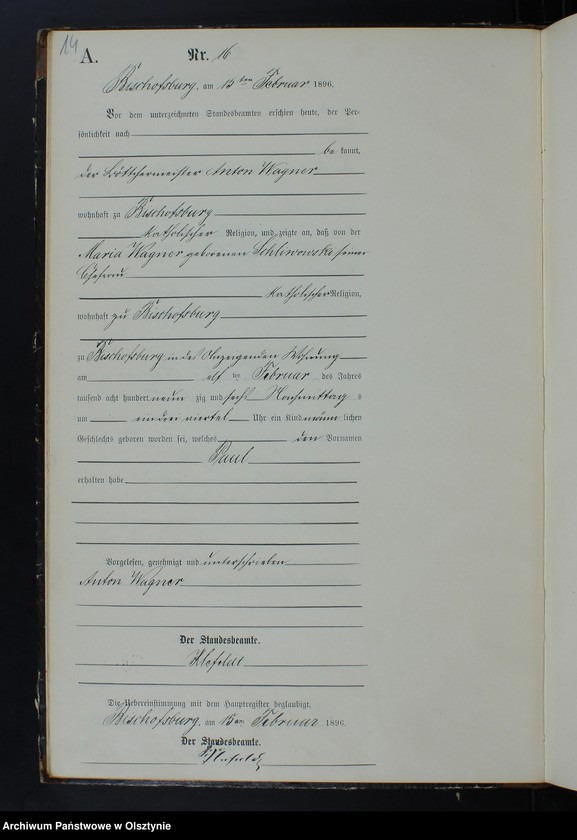 14
A.
Nr. 16
Bischofsburg, am 15ten Februar 1896.
Vor dem unterzeichneten Standesbeamten erschien heute, der Per-
sönlichkeit nach
be kannt,
der Böttchermeister Anton Wagner
wohnhaft zu Bischofsburg
katholischer Religion, und zeigte an, daß von der
Maria Wagner geborenen Schliwowska seiner
Ehefrau
katholischer Religion,
wohnhaft zu Bischofsburg
zu Bischofsburg in des Anzeigenden Wohnung
am elf ten Februar des Jahres
tausend acht hundert neun zig und sechs Nachmittag s
um ein drei viertel Uhr ein Kind männ lichen
Geschlechts geboren worden sei, welches den Vornamen
Paul
erhalten habe
Vorgelesen, genehmigt und unterschrieben
Anton Wagner
Der Standesbeamte.
Die Uebereinstimmung mit dem Hauptregister beglaubigt.
Bischofsburg, am 15ten Februar 1896.
Der Standesbeamte.
Archiwum Państwowe w Olsztynie